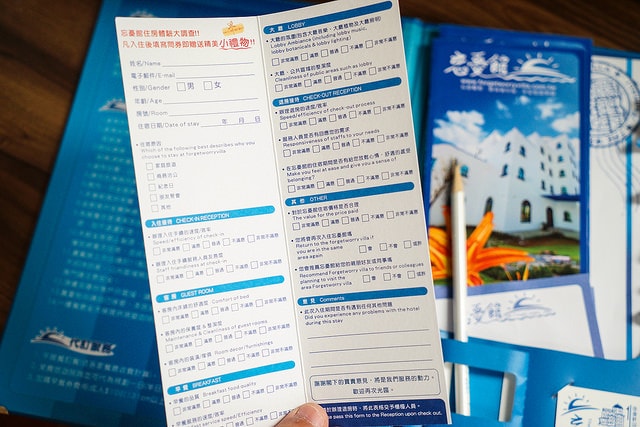 忘憂館住房體驗大調查!!
凡入住後填寫問券即贈送精美小禮物!!
姓名/Name
電子郵件/E-mail
性別/Gender □男 □女
年齡/Age
房號/Room
住宿日期/Date of stay 年 月 日
Which of the following best describes who you
choose to stay at forgetworryvilla
□ 家庭旅遊
□ 商務洽公
□ 紀念日
□ 朋友聚會
□ 其他
入住接待 CHECK-IN RECEPTION
• 辦理入住手續的速度/效率
Speed/efficiency of check-in
□非常滿意 □滿意 □普通 □不滿意 □非常不滿意
• 辦理入住手續時人員友善度
Staff friendliness at check-in
□非常滿意 □滿意 □普通 □不滿意 □非常不滿意
客房 GUEST ROOM
• 客房內床鋪的舒適度 Comfort of bed
□非常滿意 □滿意 □普通 □不滿意 □非常不滿意
• 客房內的保養度 & 整潔度
Maintenance & Cleanliness of guestrooms
□非常滿意 □滿意 □普通 □不滿意 □非常不滿意
Room decor/furnishings
□非常滿意 □滿意 □普通 □不滿意 □非常不滿意
早餐 BREAKFAST
• 早餐的品質 Breakfast food quality
□非常滿意 □滿意 □普通 □不滿意 □非常不滿意
service speed/Efficiency
大廳 LOBBY
Lobby Ambiance (including lobby music,
lobby botanicals & lobby lighting)
□非常滿意 □滿意 □普通 □不滿意 □非常不滿意
• 大廳、公共區域的整潔度
Cleanliness of public areas such as lobby
□非常滿意 □滿意 □普通 □不滿意 □非常不滿意
退房接待 CHECK-OUT RECEPTION
• 辦理退房的速度/效率
Speed/efficiency of check-out process
□非常滿意 □滿意 □普通 □不滿意 □非常不滿意
• 服務人員是否有回應您的需求
Responsiveness of staffs to your needs
□非常滿意 □滿意 □普通 □不滿意 □非常不滿意
• 在忘憂館的住宿期間是否有給您放鬆心情、舒適的感覺
Make you feel at ease and give you a sense of
belonging?
□非常滿意 □滿意 □普通 □不滿意 □非常不滿意
其他 OTHER
• 對於忘憂館住宿價格是否合理
The value for the price paid
□非常滿意 □滿意 □普通 □不滿意 □非常不滿意
• 您將會再次入住忘憂館嗎
Return to the forgetworry villa if
you are in the same
area again □會 □不會 □或許
• 您會推薦忘憂館給您的親朋好友或同事嗎
Recommend Forgetworry villa to friends or colleagues
planning to visit the
area Forgetworry villa □會 □不會 □或許
意見 Comments
• 此次入住期間是否有遇到任何其他問題
Did you experience any problems with the hotel
during this stay
謝謝閣下的寶貴意見，將是我們服務的動力。
歡迎再次光臨。
pass this form to the Reception upon check out.
忘憂館
www.forgetworryvilla.com.tw
忘憂館
代訂服務